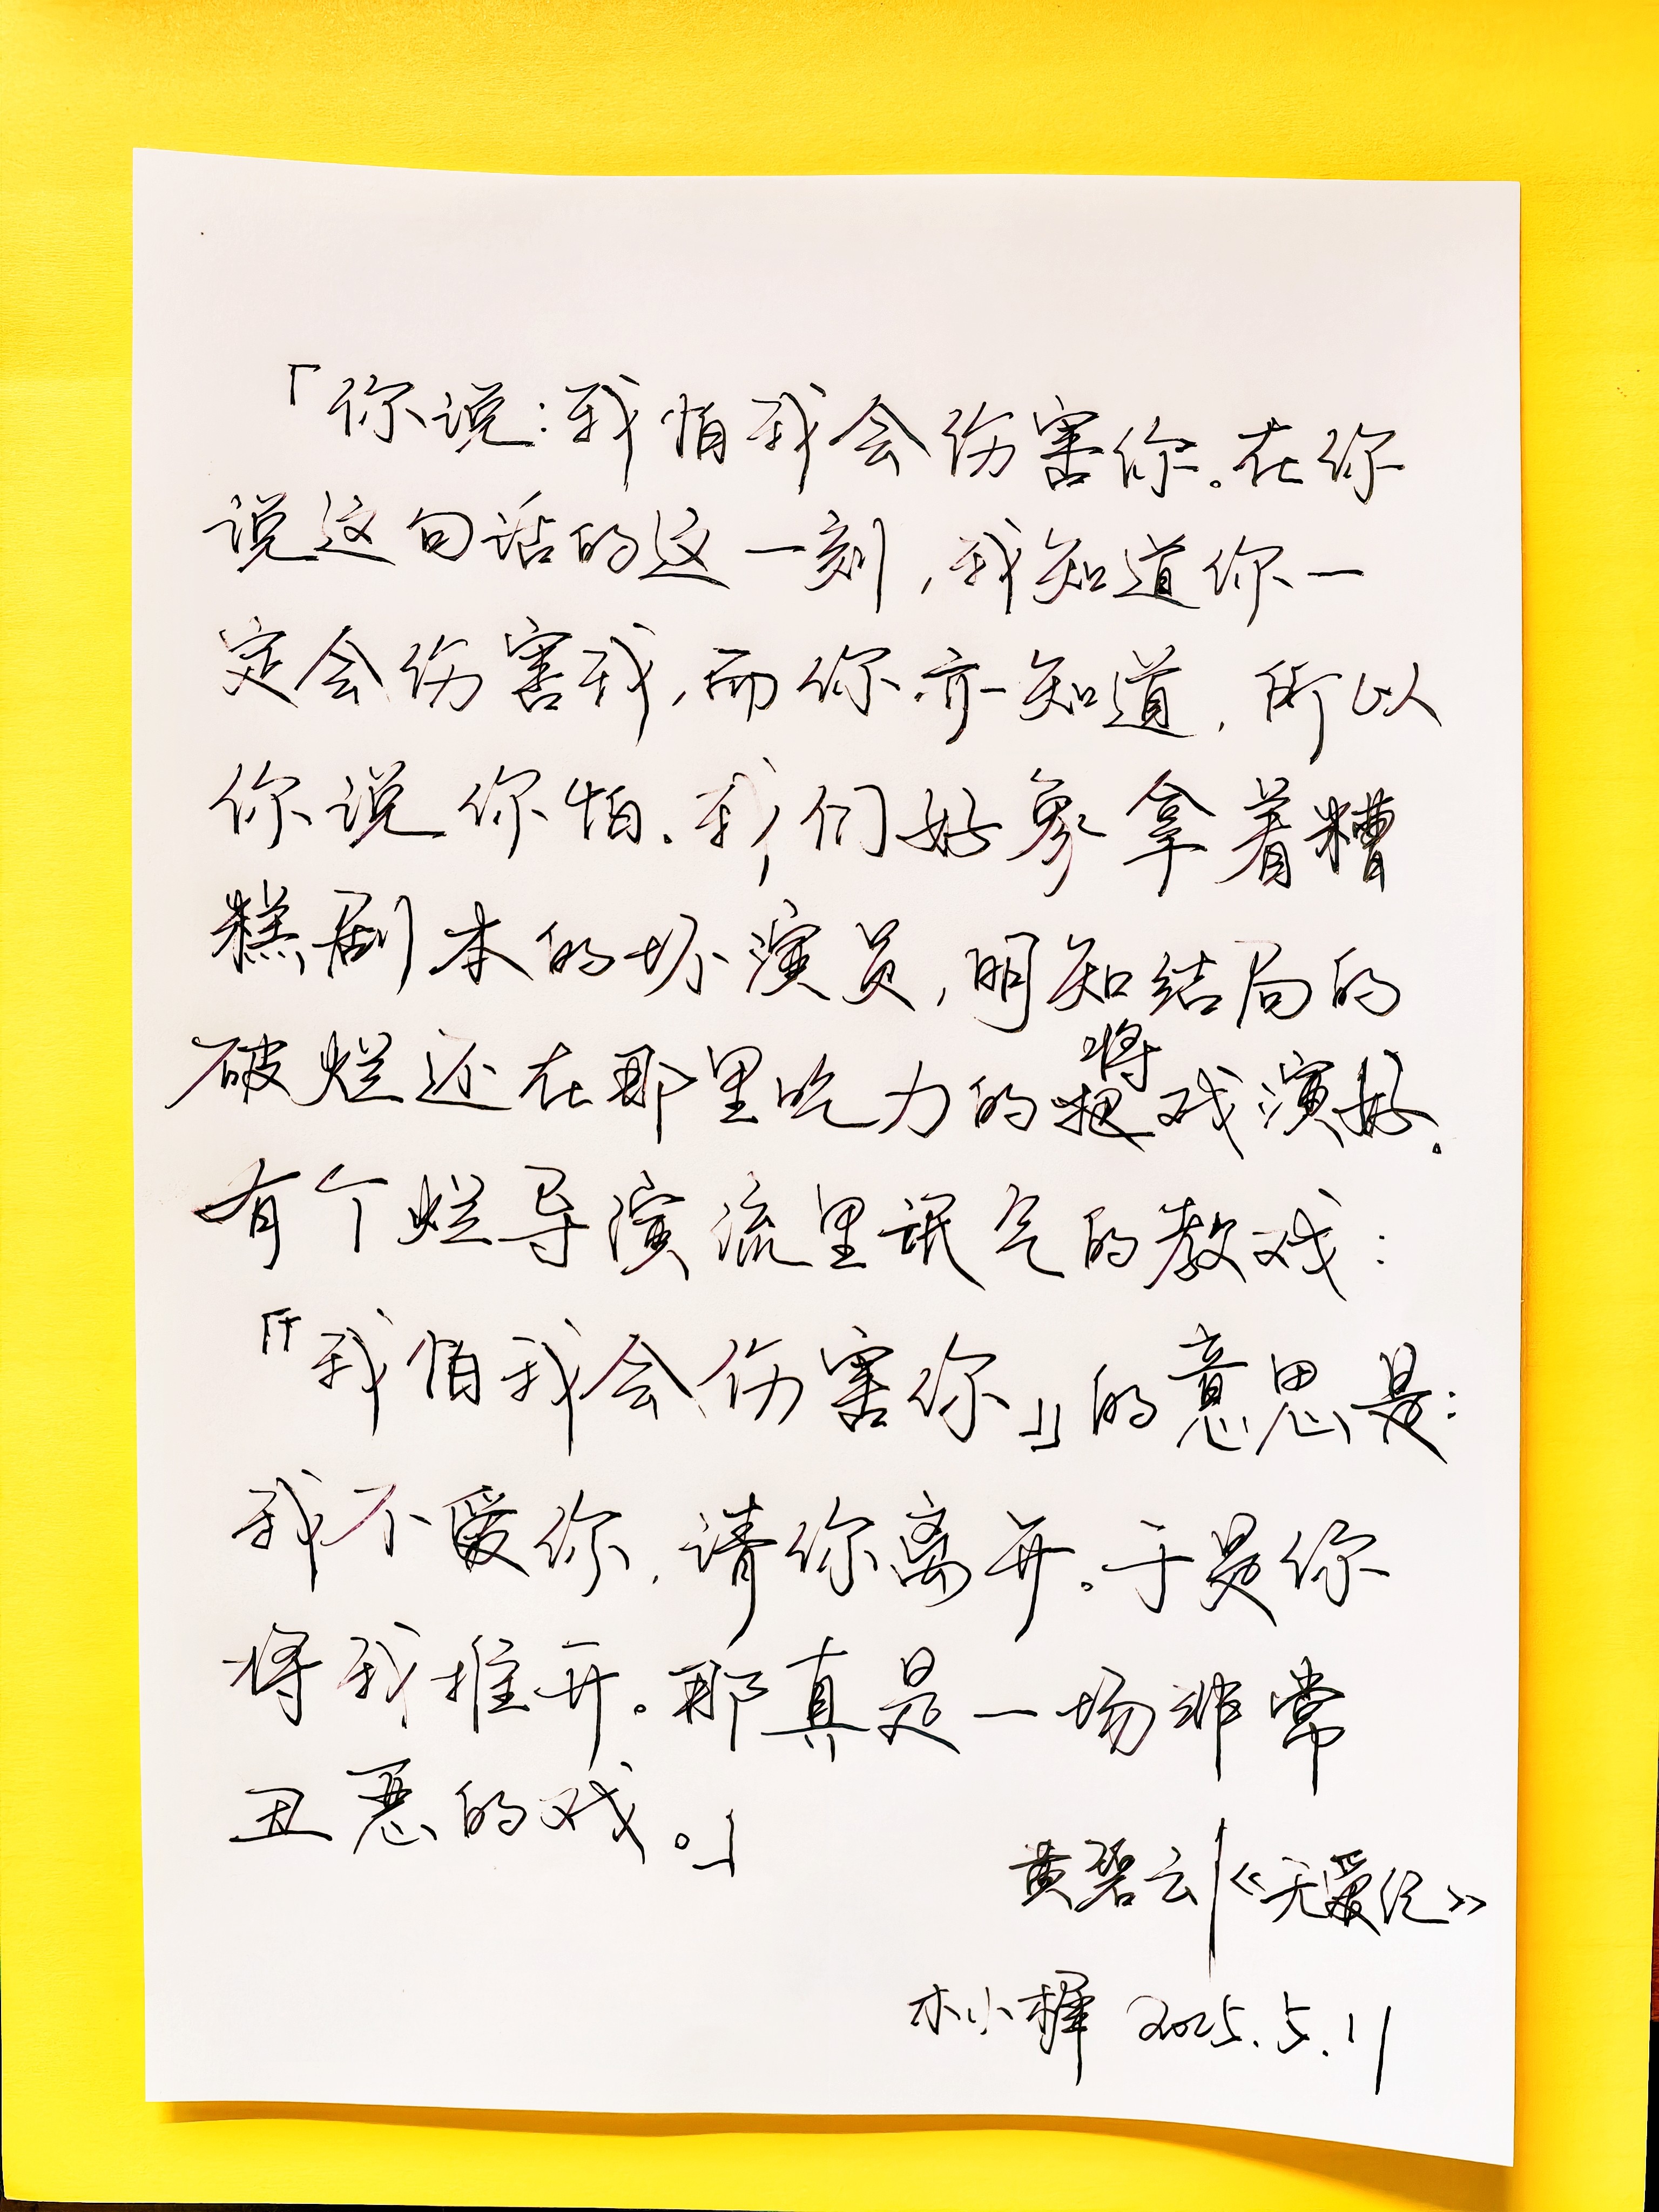 「你说:我怕我会伤害你。在你
说这句话的这一刻,我知道你一
定会伤害我,而你亦知道,所以
你说你怕.我们好象拿着糟
糕剧本的坏演员,明知结局的
破烂还在那里吃力的将戏演好。
有个烂导演流里氓气的教戏:
『我怕我会伤害你』的意思是:
我不爱你,请你离开。于是你
将我推开。那真是一场非常
丑恶的戏。」
黄碧云|《无爱纪》
木小樨 2025.5.11